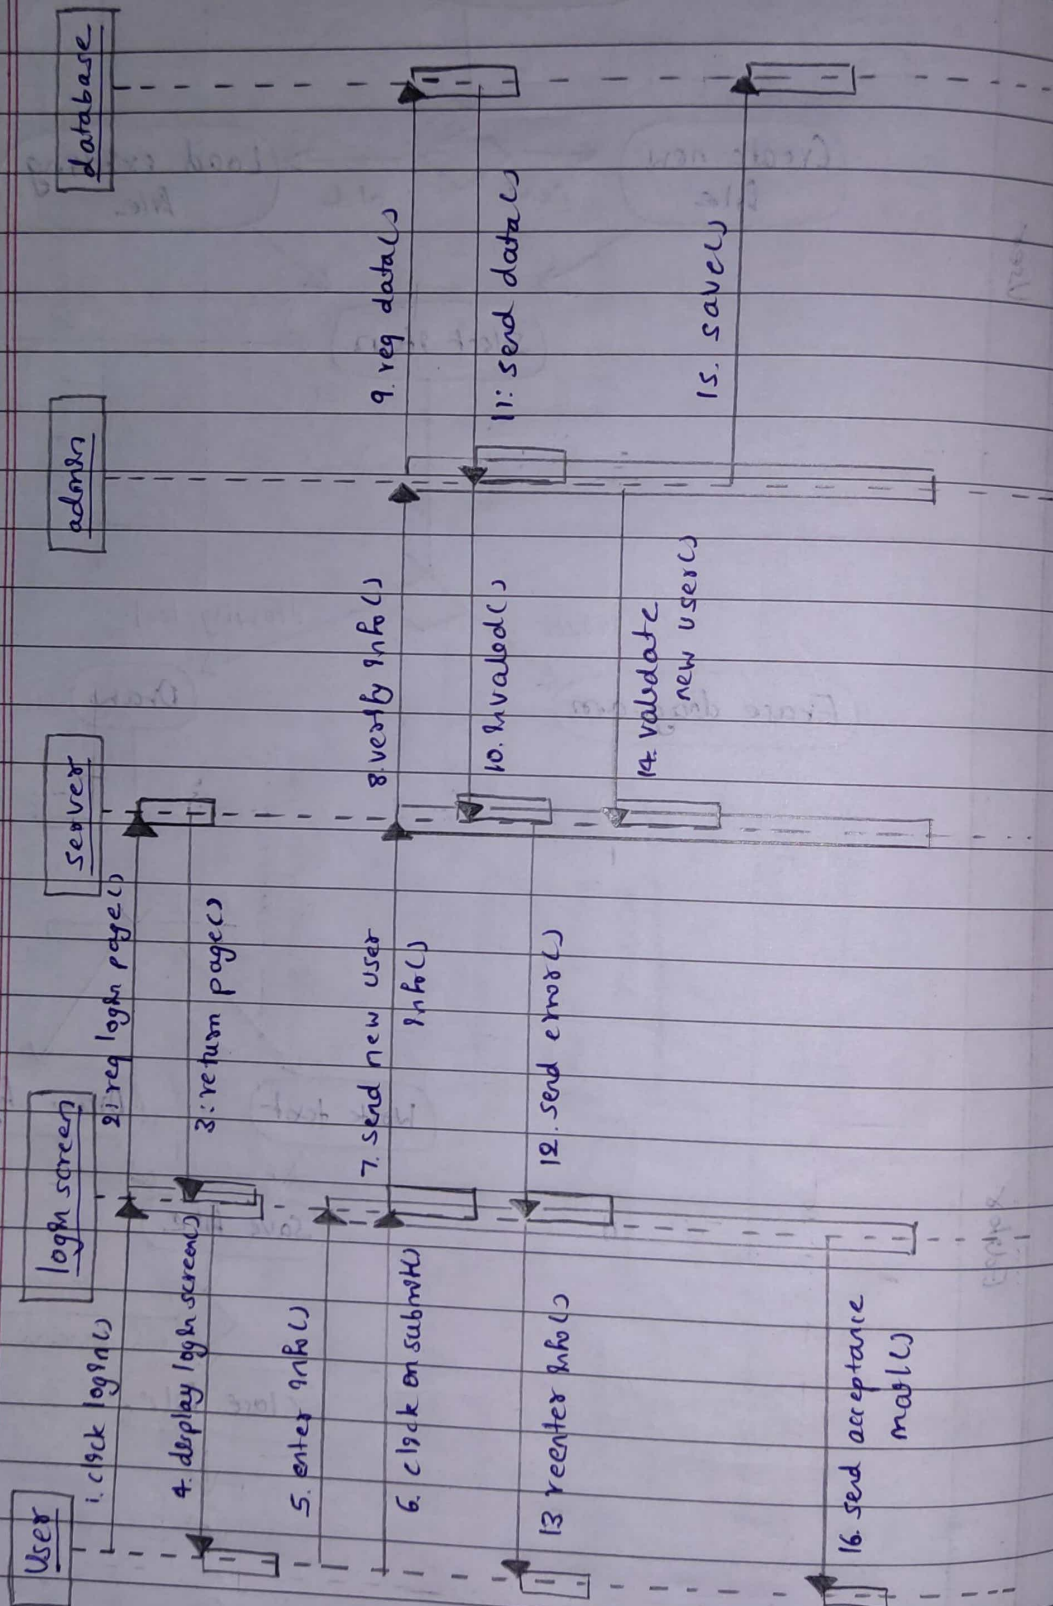 User
login screen
server
admin
database
1. click login()
2: req login page()
3: return page()
4. display login screen()
5. enter info()
6. click on submit()
7. send new user
info()
8. verify info()
9. req data()
10. Invalid()
11: send data()
12. send error()
13 reenter info()
14. validate
new user()
15. save()
16. send acceptance
mail()